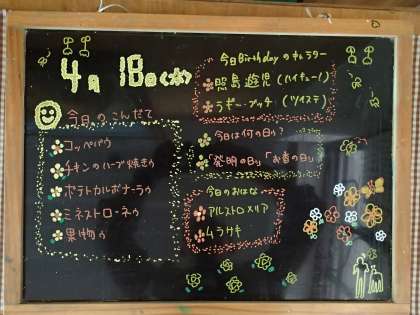 4月18日(水)
今日のこんだて
コッペパン
チキンのハーブ焼き
ポテトカルボナーラ
ミネストローネ
果物
今日Birthdayのキャラクター
照島遊児(ハイキュー!!)
ラギー・ブッチ(ツイステ)
今日は何の日?
「発明の日」「お香の日」
今日のおはな
アルストロメリア
ムラサキ